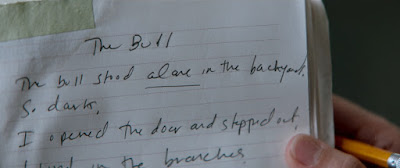 The Bull
The bull stood alone in the backyard.
So dark.
I opened the door and stepped out.
in the branches